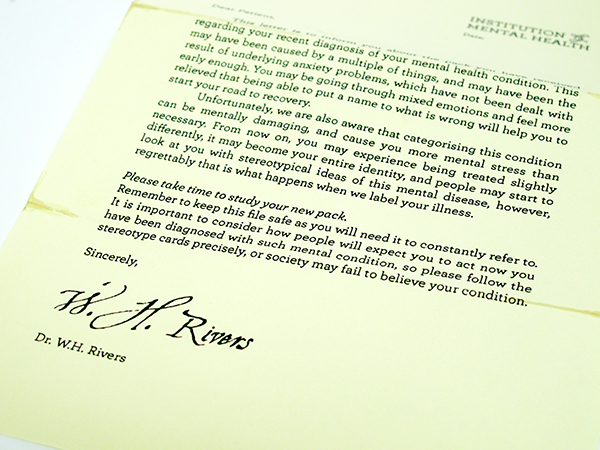 Dear Patient,
INSTITUTION of
MENTAL HEALTH
Date:
This letter is to inform you about the pack you have received
regarding your recent diagnosis of your mental health condition. This
may have been caused by a multiple of things, and may have been the
result of underlying anxiety problems, which have not been dealt with
early enough. You may be going through mixed emotions and feel more
relieved that being able to put a name to what is wrong will help you to
start your road to recovery.
Unfortunately, we are also aware that categorising this condition
can be mentally damaging, and cause you more mental stress than
necessary. From now on, you may experience being treated slightly
differently, it may become your entire identity, and people may start to
look at you with stereotypical ideas of this mental disease, however,
regrettably that is what happens when we label your illness.
Please take time to study your new pack.
Remember to keep this file safe as you will need it to constantly refer to.
It is important to consider how people will expect you to act now you
have been diagnosed with such mental condition, so please follow the
stereotype cards precisely, or society may fail to believe your condition.
Sincerely,
W. H. Rivers
Dr. W.H. Rivers